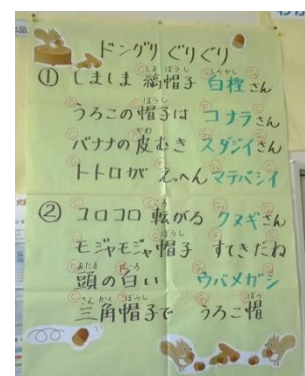 ドングリ ぐりぐり
① しましま 縞帽子 白樫さん
うろこの帽子は コナラさん
バナナの皮むき スダジイさん
トトロが えっへん マテバシイ
② コロコロ 転がる クヌギさん
モジャモジャ帽子 すてきだね
頭の白い ウバメガシ
三角帽子で うろこ帽